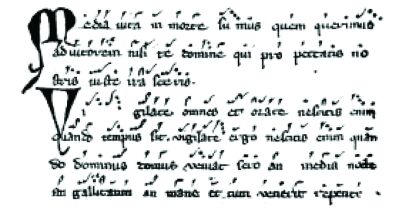 Media uita in morte su mus quem querimus
ad iutorem nisi te domine qui pro peccatis no
stris iuste irasceris.
Vigilate omnes et orate nescitis enim
quando tempus sit. vigilate ergo nescitis enim quan
do dominus domus veniat sero an media nocte
an gallicantu an mane et cum venerit repente